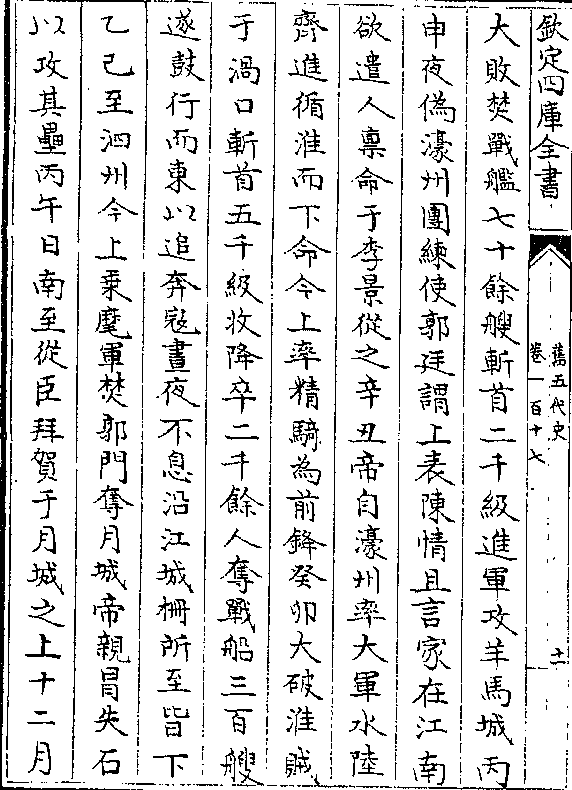 欽定四庫全書
舊五代史
卷一百十七
十一
大敗焚戰艦七十餘艘斬首二千級進軍攻羊馬城丙
申夜偽濠州團練使郭廷謂上表陳情且言家在江南
欲遣人禀命于李景從之辛丑帝自濠州率大軍水陸
齊進循淮而下命今上率精騎為前鋒癸卯大破淮賊
于渦口斬首五千級收降卒二千餘人奪戰船三百艘
遂鼓行而東以追奔寇晝夜不息沿江城柵所至皆下
乙已至泗州今上乘麾軍焚郭門奪月城帝親冒失石
以攻其壘丙午日南至從臣拜賀于月城之上十二月